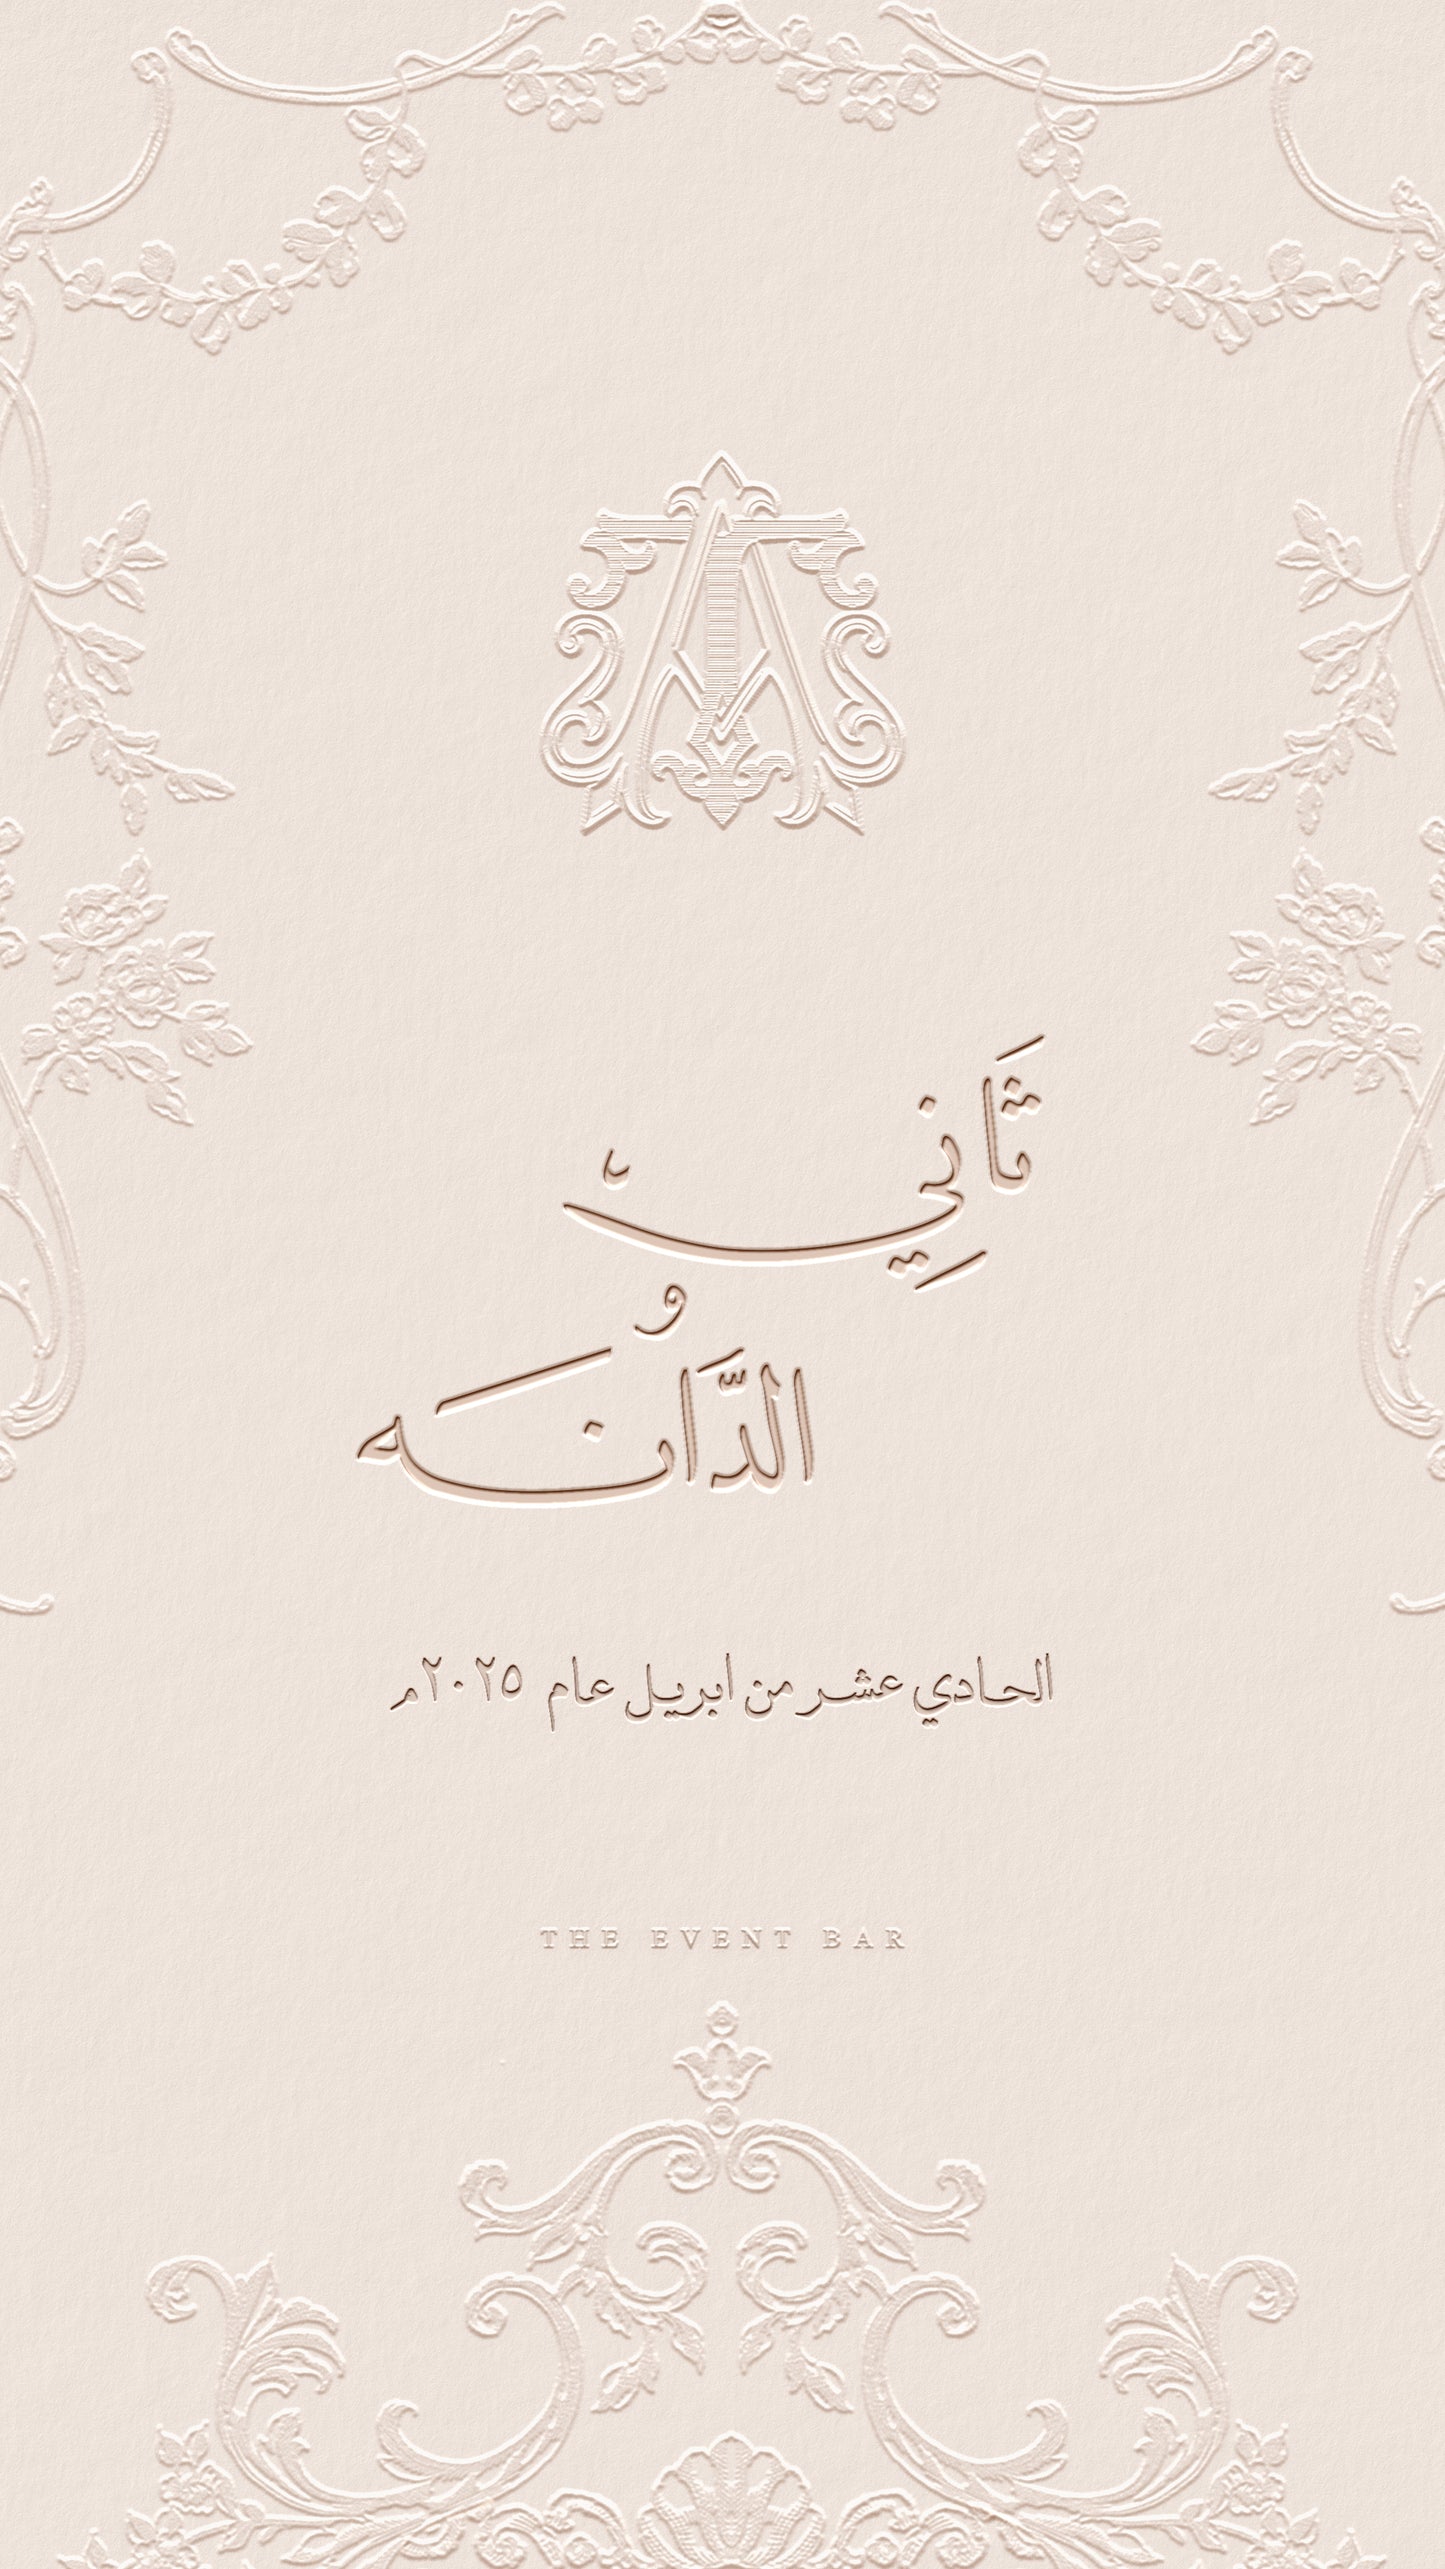 ثَانِي
و
الدَّانَه
الحادي عشر من ابريل عام ٢٠٢٥م
THE EVENT BAR